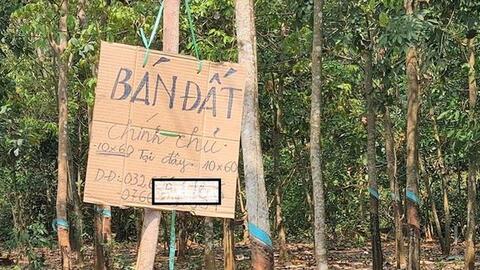 BÁN ĐẤT
chính chủ
10x60 tại đây. 10x60
D-Đ: 032
0766